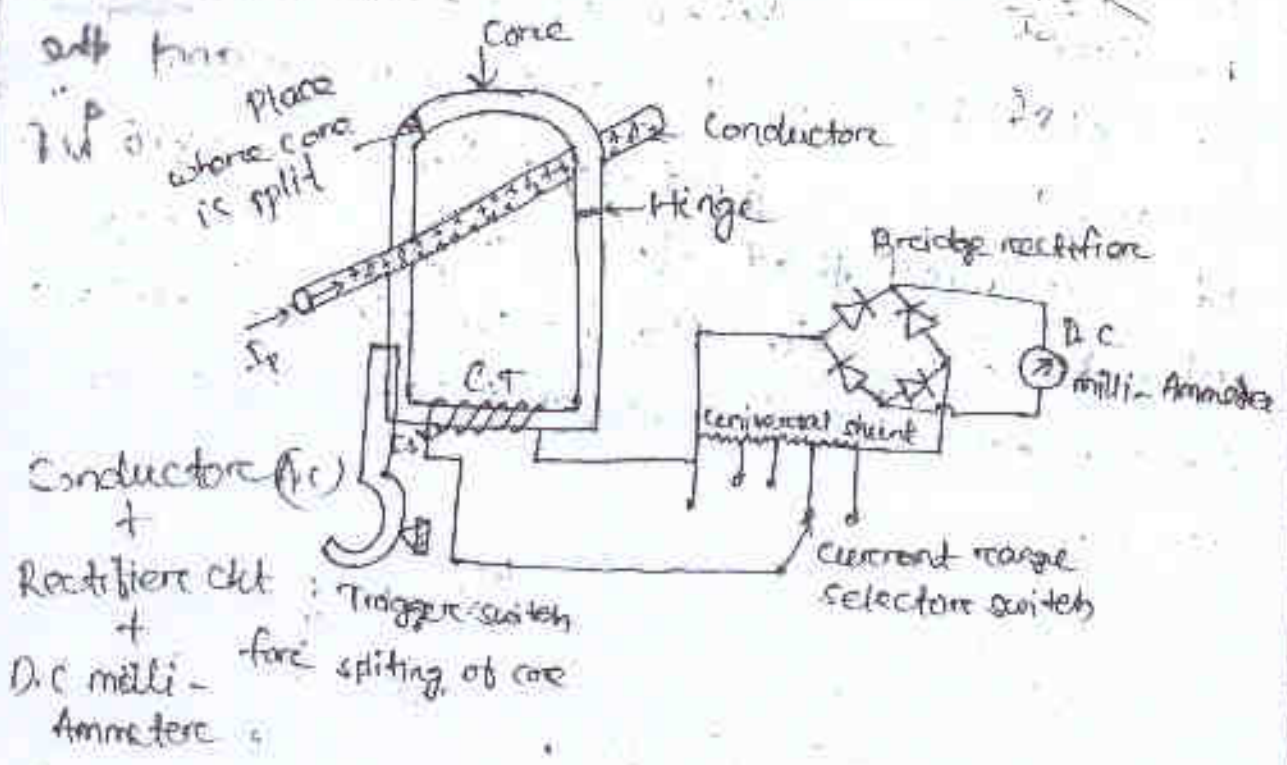 Core
Place
where core
is split
Conductore
Hinge
Breidge rectifiore
D.C
milli-Ammetere
Ip
C.T
Is
universal shunt
Conductore (A.c)
+
Rectifiere ckt
+
D.C milli-
Ammetere
Trigger switch
fore spliting of core
Current range
selectore switch